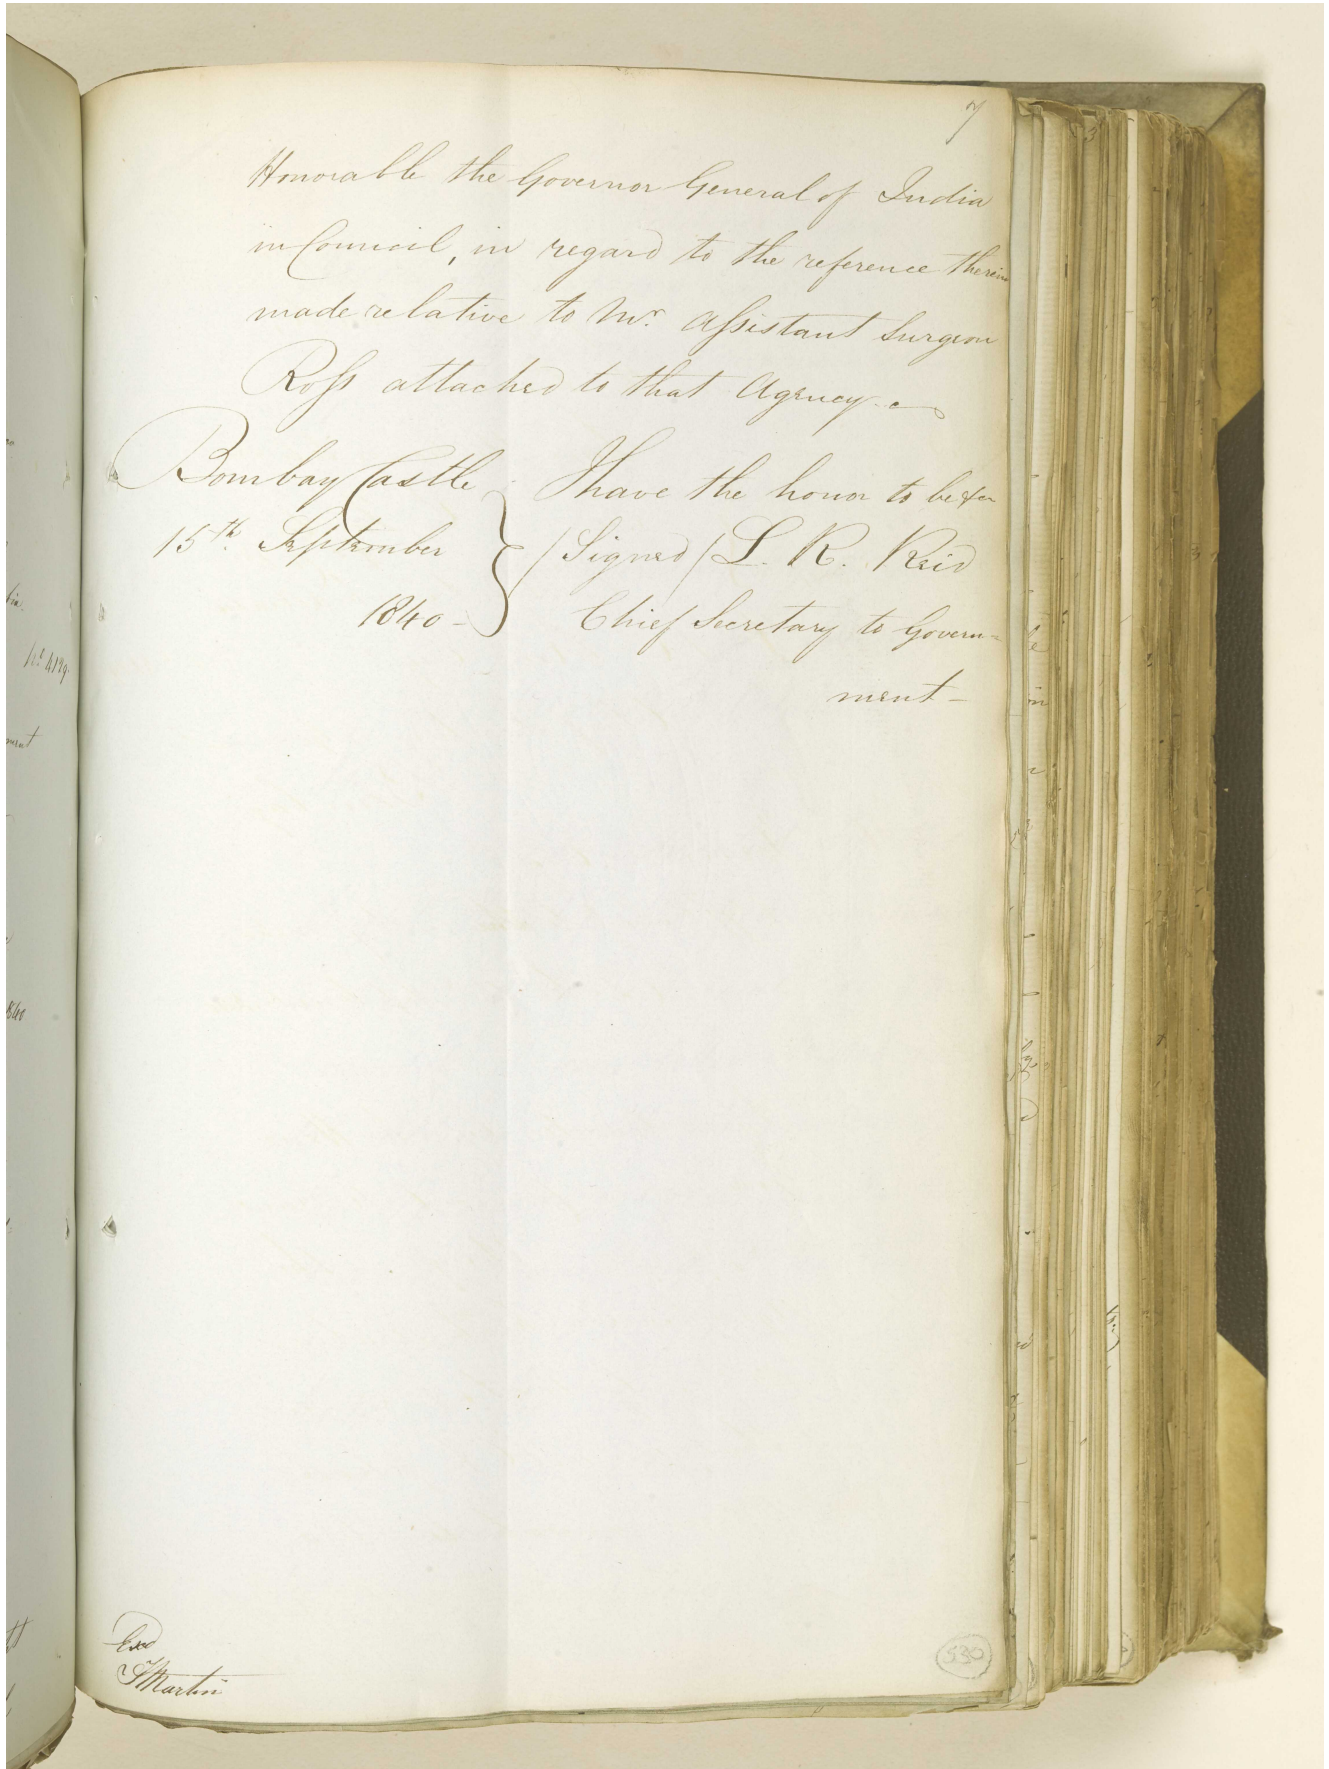 7
Honorable the Governor General of India
in Council, in regard to the reference therein
made relative to Mr. Assistant Surgeon
Ross attached to that Agency.
Bombay Castle
15th. September
1840-
I have the honor to be &ca
/Signed/ L. R. Reid
Chief Secretary to Govern=
ment-
Exd
Martin
530
No 4129
ment
1840